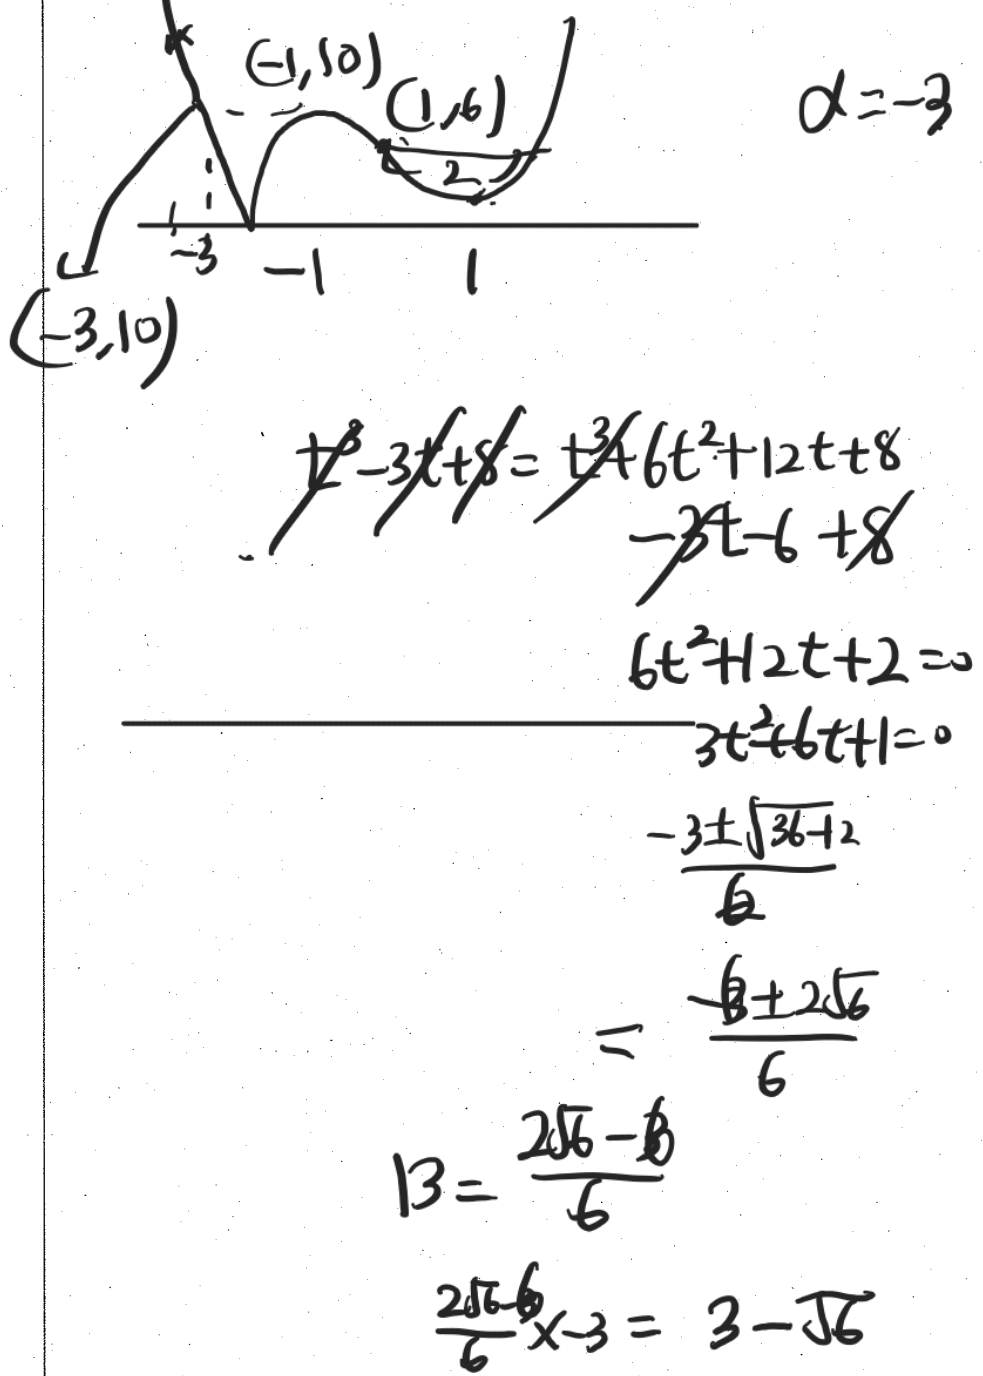 (-1, 10)
(1, 6)
α = -3
2
-3
-1
1
(-3, 10)
t³ - 3t + 8 = t³ + 6t² + 12t + 8
-3t - 6 + 8
6t² + 12t + 2 = 0
3t² + 6t + 1 = 0
(-3 ± √(36-12)) / 6
= (-6 ± 2√6) / 6
β = (2√6 - 6) / 6
(2√6 - 6) / 6 × -3 = 3 - √6